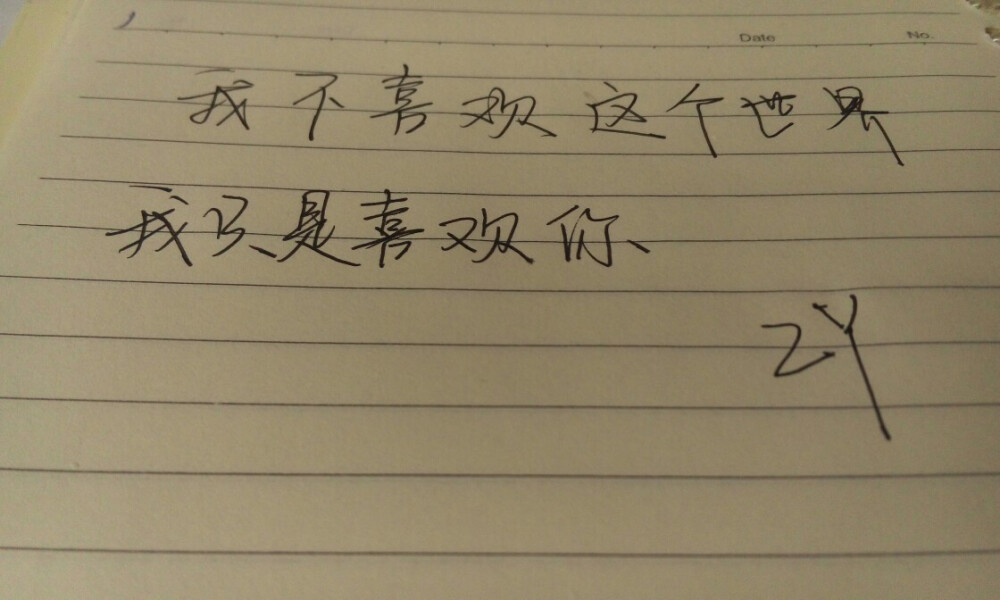 Date No.
我不喜欢这个世界
我只是喜欢你、
ZY